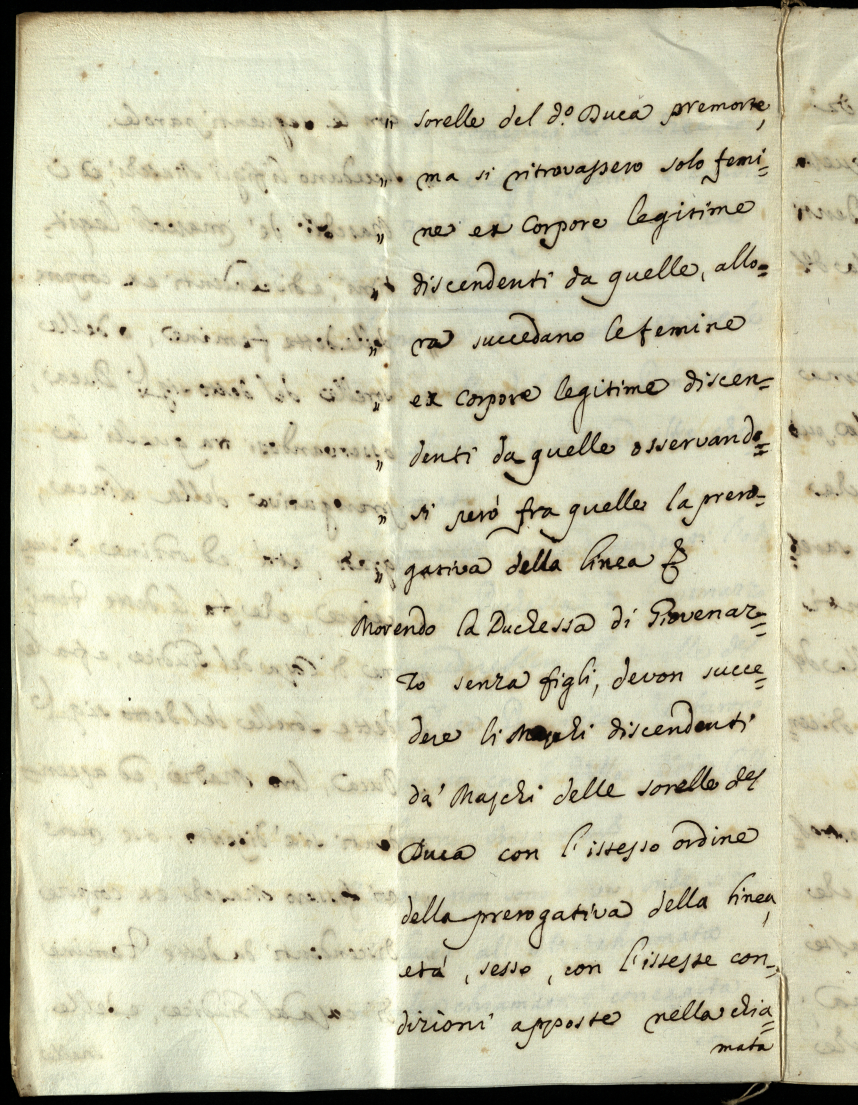 „ sorelle del d.º Duca premorte,
„ ma si ritrovassero solo femi=
„ ne ex Corpore legitime
„ discendenti da quelle, allo=
„ ra succedano le femine
„ ex Corpore legitime discen=
„ denti da quelle osservando=
„ si però fra quelle la prero=
„ gativa della linea &
Morendo la Duchessa di Giovenaz=
zo senza figli, devon succe=
dere li Maschi discendenti
da' Maschi delle sorelle del
Duca con l'istesso ordine
della prerogativa della linea,
età, sesso, con l'istesse con=
dizioni apposte nella chia=
mata